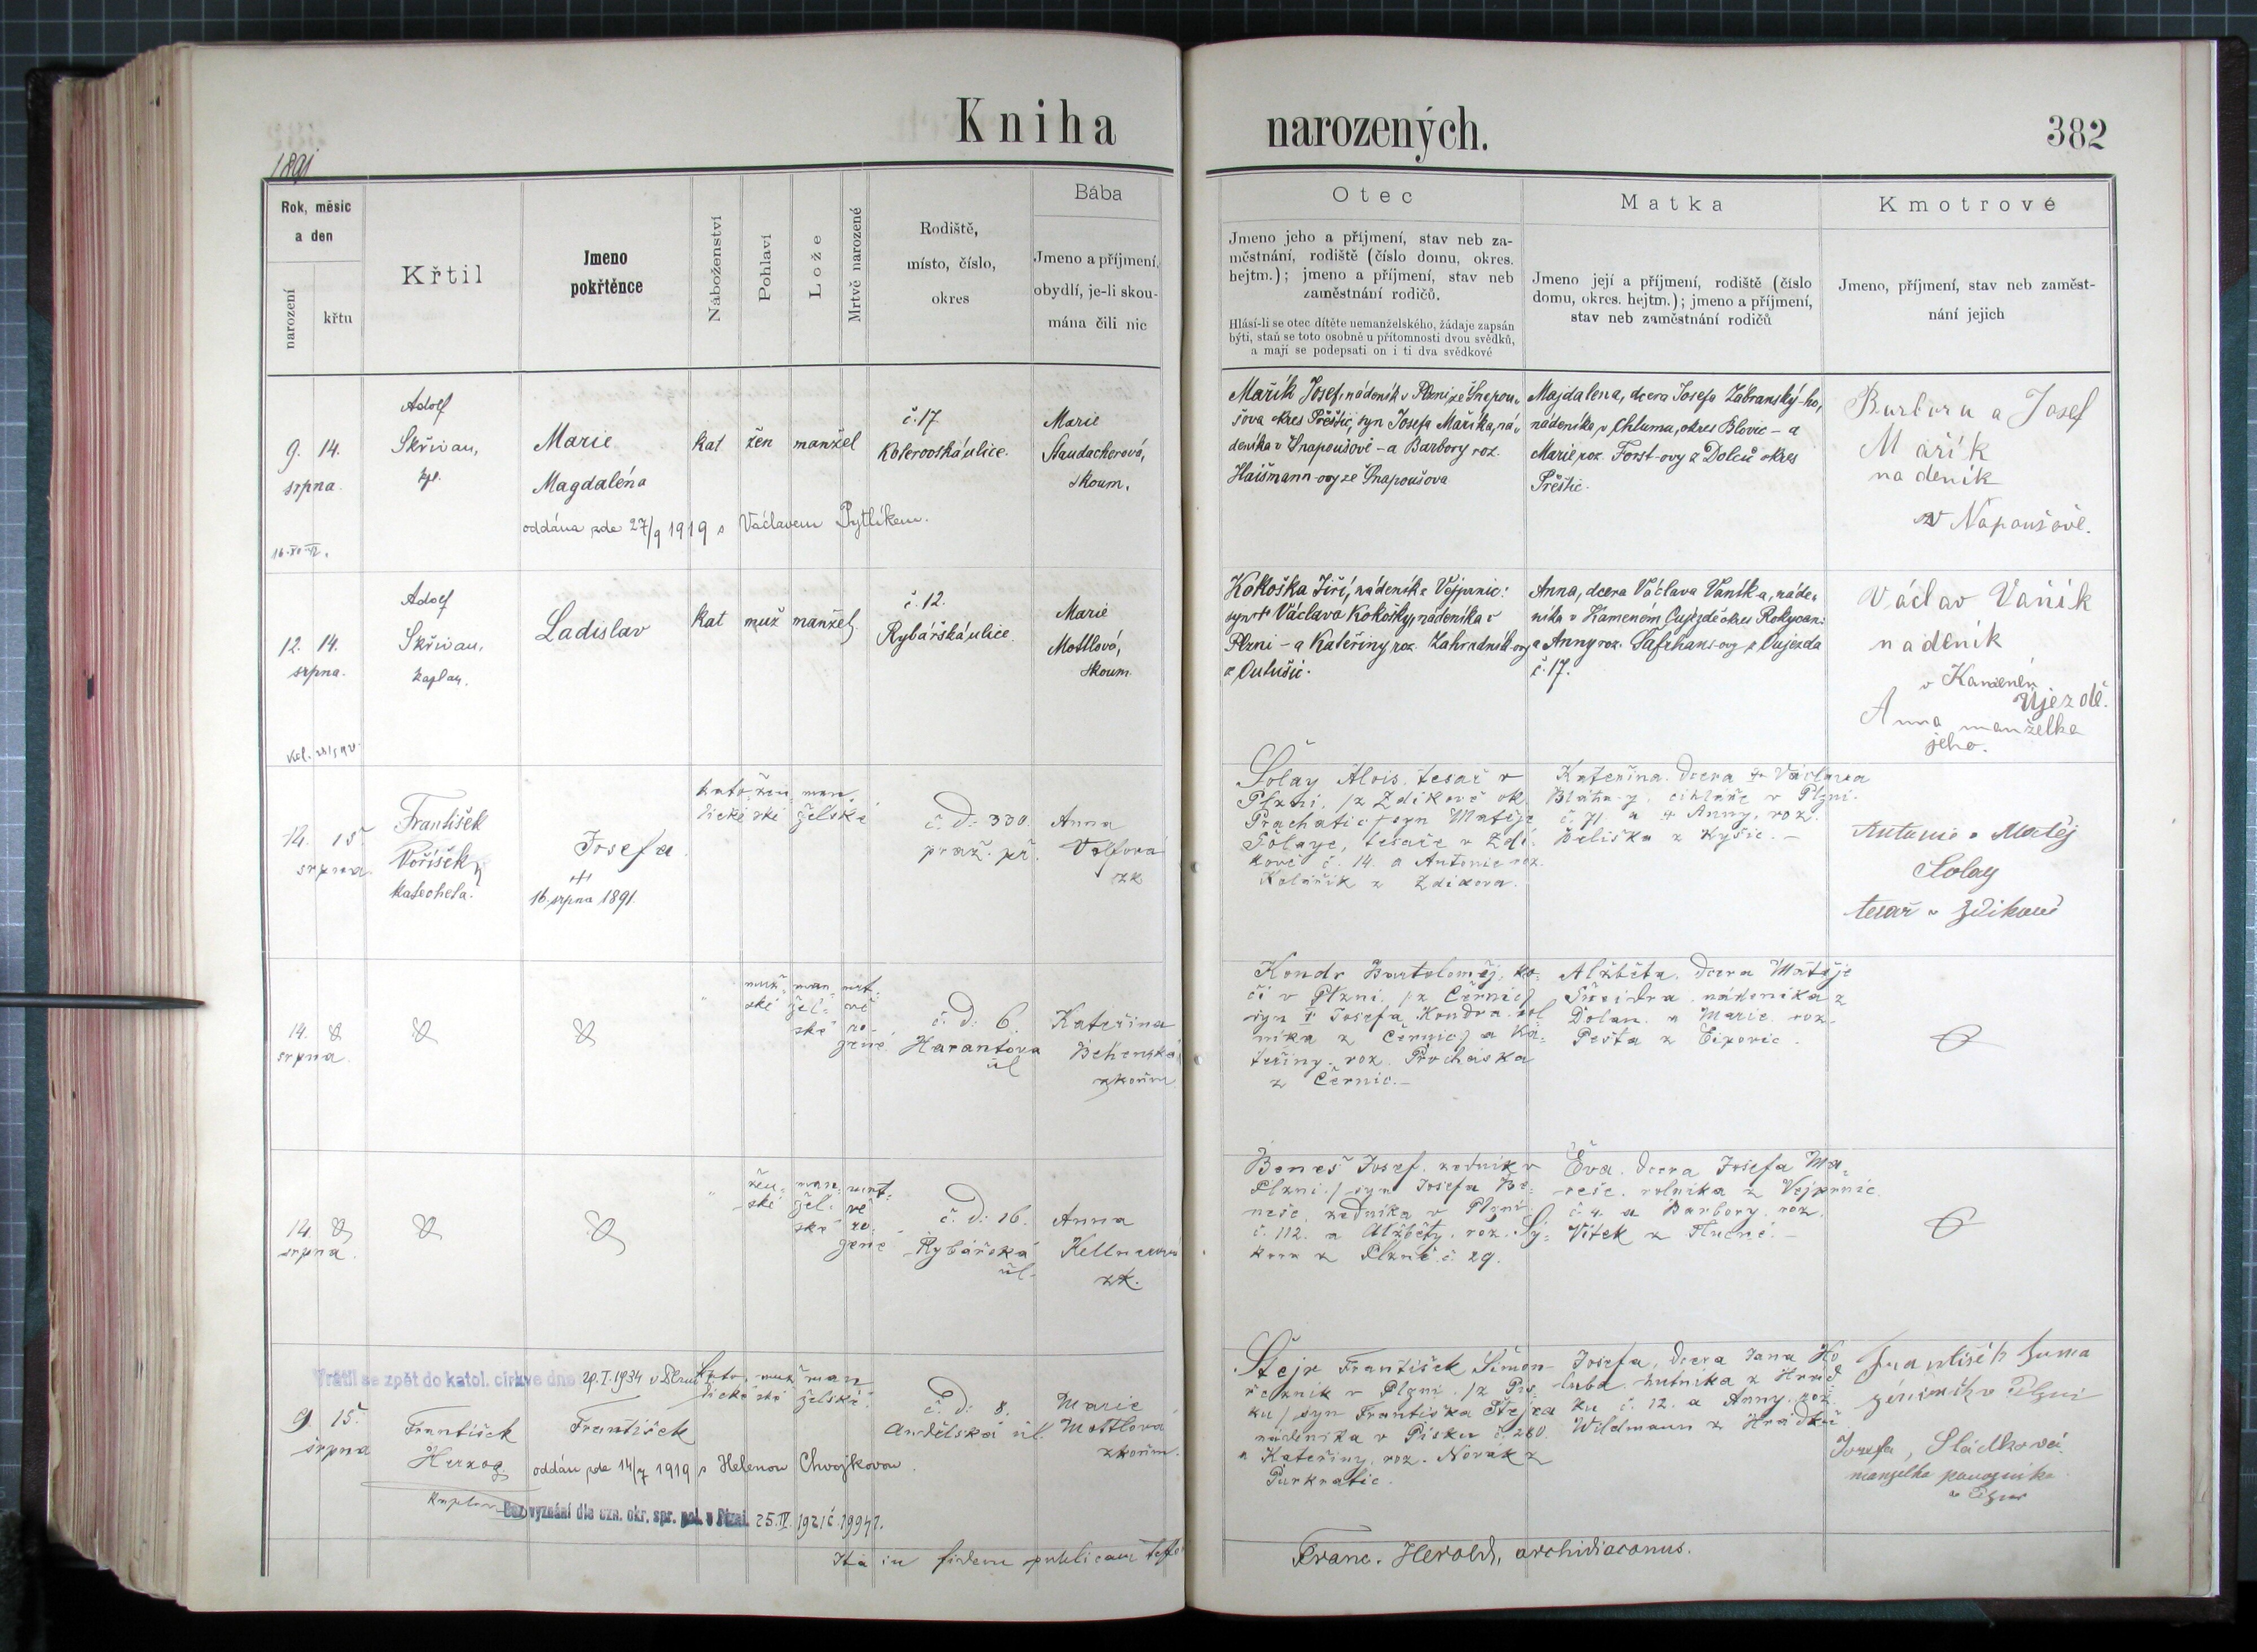 Kniha
narozených.
382
1891
Rok, měsíc
a den
narození
křtu
Křtil
Jmeno
pokřtěnce
Náboženství
Pohlaví
Lože
Mrtvě narozené
Rodiště,
místo, číslo,
okres
Bába
Jmeno a příjmení,
obydlí, je-li skou-
mána čili nic
Otec
Jmeno jeho a příjmení, stav neb za-
městnání, rodiště (číslo domu, okres.
hejtm.); jmeno a příjmení, stav neb
zaměstnání rodičů.
Hlásí-li se otec dítěte nemanželského, žádaje zapsán
býti, staň se toto osobně u přítomnosti dvou svědků,
a mají se podepsati on i ti dva svědkové
Matka
Jmeno její a příjmení, rodiště (číslo
domu, okres. hejtm.); jmeno a příjmení,
stav neb zaměstnání rodičů
Kmotrové
Jmeno, příjmení, stav neb zaměst-
nání jejich
9. 14.
srpna.
Adolf
Skřivan,
kpl.
Marie
Magdaléna
oddána zde 27/9 1919 s Václavem Pytlíkem.
kat žen manžel
č. 17
Kolerovská ulice.
Marie
Staudacherová,
skoum.
Mařík Josef, nádeník v Plzni ze Snopou-
šova okres Přeštic, syn Josefa Maříka, ná-
deníka v Snapoušově - a Barbory roz.
Haišmann-ovy ze Snapoušova
Majdalena, dcera Josefa Zábranský-ho,
nádeníka v Chlumu, okres Blovic - a
Marie roz. Forst-ovy z Dolců okres
Přeštic.
Barbora a Josef
Mařík
nadeník
v Napoušově.
12. 14.
srpna.
Adolf
Skřivan,
kaplan.
Ladislav
kat muž manžel
č. 12.
Rybářská ulice.
Marie
Mottlová,
skoum.
Kokoška Jiří, nádeník z Vejprnic:
syn † Václava Kokošky, nádeníka v
Plzni - a Kateřiny roz. Zahradník-ovy
z Outušic.
Anna, dcera Václava Vaník-a, náde-
níka v Kameném Oujezdě okres Rokycan:
a Anny roz. Šafrhans-ovy z Oujezda
č. 17.
Václav Vaňík
nadeník
v Kameném
Újezdě.
Anna manželka
jeho.
14. 15.
srpna
František
Voříšek
katecheta.
Josefa
16. srpna 1891.
kato- žen- man-
lické ské želské
č. d: 330.
praž. př.
Anna
Volfová
zk
Šolay Alois, tesař v
Plzni. /z Zdíkově ok.
Prachatic/ syn Matěje
Šolaye, tesaře v Zdí-
kově č. 14. a Antonie roz.
Kolářík z Zdíkova.
Kateřina. dcera † Václava
Bláha-y, cihláře v Plzni.
č. 71 a † Anny, roz.
Beliška z Kyšic. -
Antonie a Matěj
Šolay
tesař v Zdíkově
14.
srpna.
muž- man- mrt-
ské žel- vě
ské ro-
zené
č. d: 6.
Harantova
úl
Kateřina
Behenská
zkoum
Kondr Bartoloměj, ko-
čí v Plzni. /z Černic/
syn † Josefa Kondra, rol
níka z Černic/ a Ka-
teřiny, roz. Procháska
z Černic. -
Alžběta. dcera Matěje
Šneidra. nádeníka z
Dolan. a Marie. roz.
Pešta z
14.
srpna.
žen- man- mrt-
ské žel- vě
ské ro-
zené
č. d: 16.
Rybářská
úl-
Anna
Kellnerová
zk.
Beneš Josef. zedník v
Plzni./ syn Josefa Be-
neše, zedníka v Plzni
č. 112. a Alžběty, roz. Sý-
kora z Plzně č. 29.
Eva. dcera Josefa Ma-
reše. rolníka z Vejprnic
č. 4. a Barbory. roz.
Vítek z Tlučné. -
Vrátil se zpět do katol. církve dne 29. I. 1934 v Plzni
9 15.
srpna
František
Herzog
kaplan
František
oddán zde 14/7 1919 s Helenou Chvojkovou.
Bez vyznání dle ozn. okr. spr. pol. v Plzni. 25. IV. 1921 č. 19947.
kato- muž- man
lické ské želské.
č. d: 8.
Andělská úl.
Marie
Mottlová
zkoum.
Štejr František Šimon
řezník v Plzni. /z Pís-
ku/ syn Františka Štejra
nádeníka v Písku č. 280.
a Kateřiny, roz. Novák z
Purkratic.
Josefa, dcera Jana Ho
luba. hutníka z Hrád
ku č. 12. a Anny. roz.
Wildmann z Hrádku
František Tuma
Josefa Sládková
manželka
v Plzni
Ita in fidem publicam teste
Franc. Herold, archidiaconus.